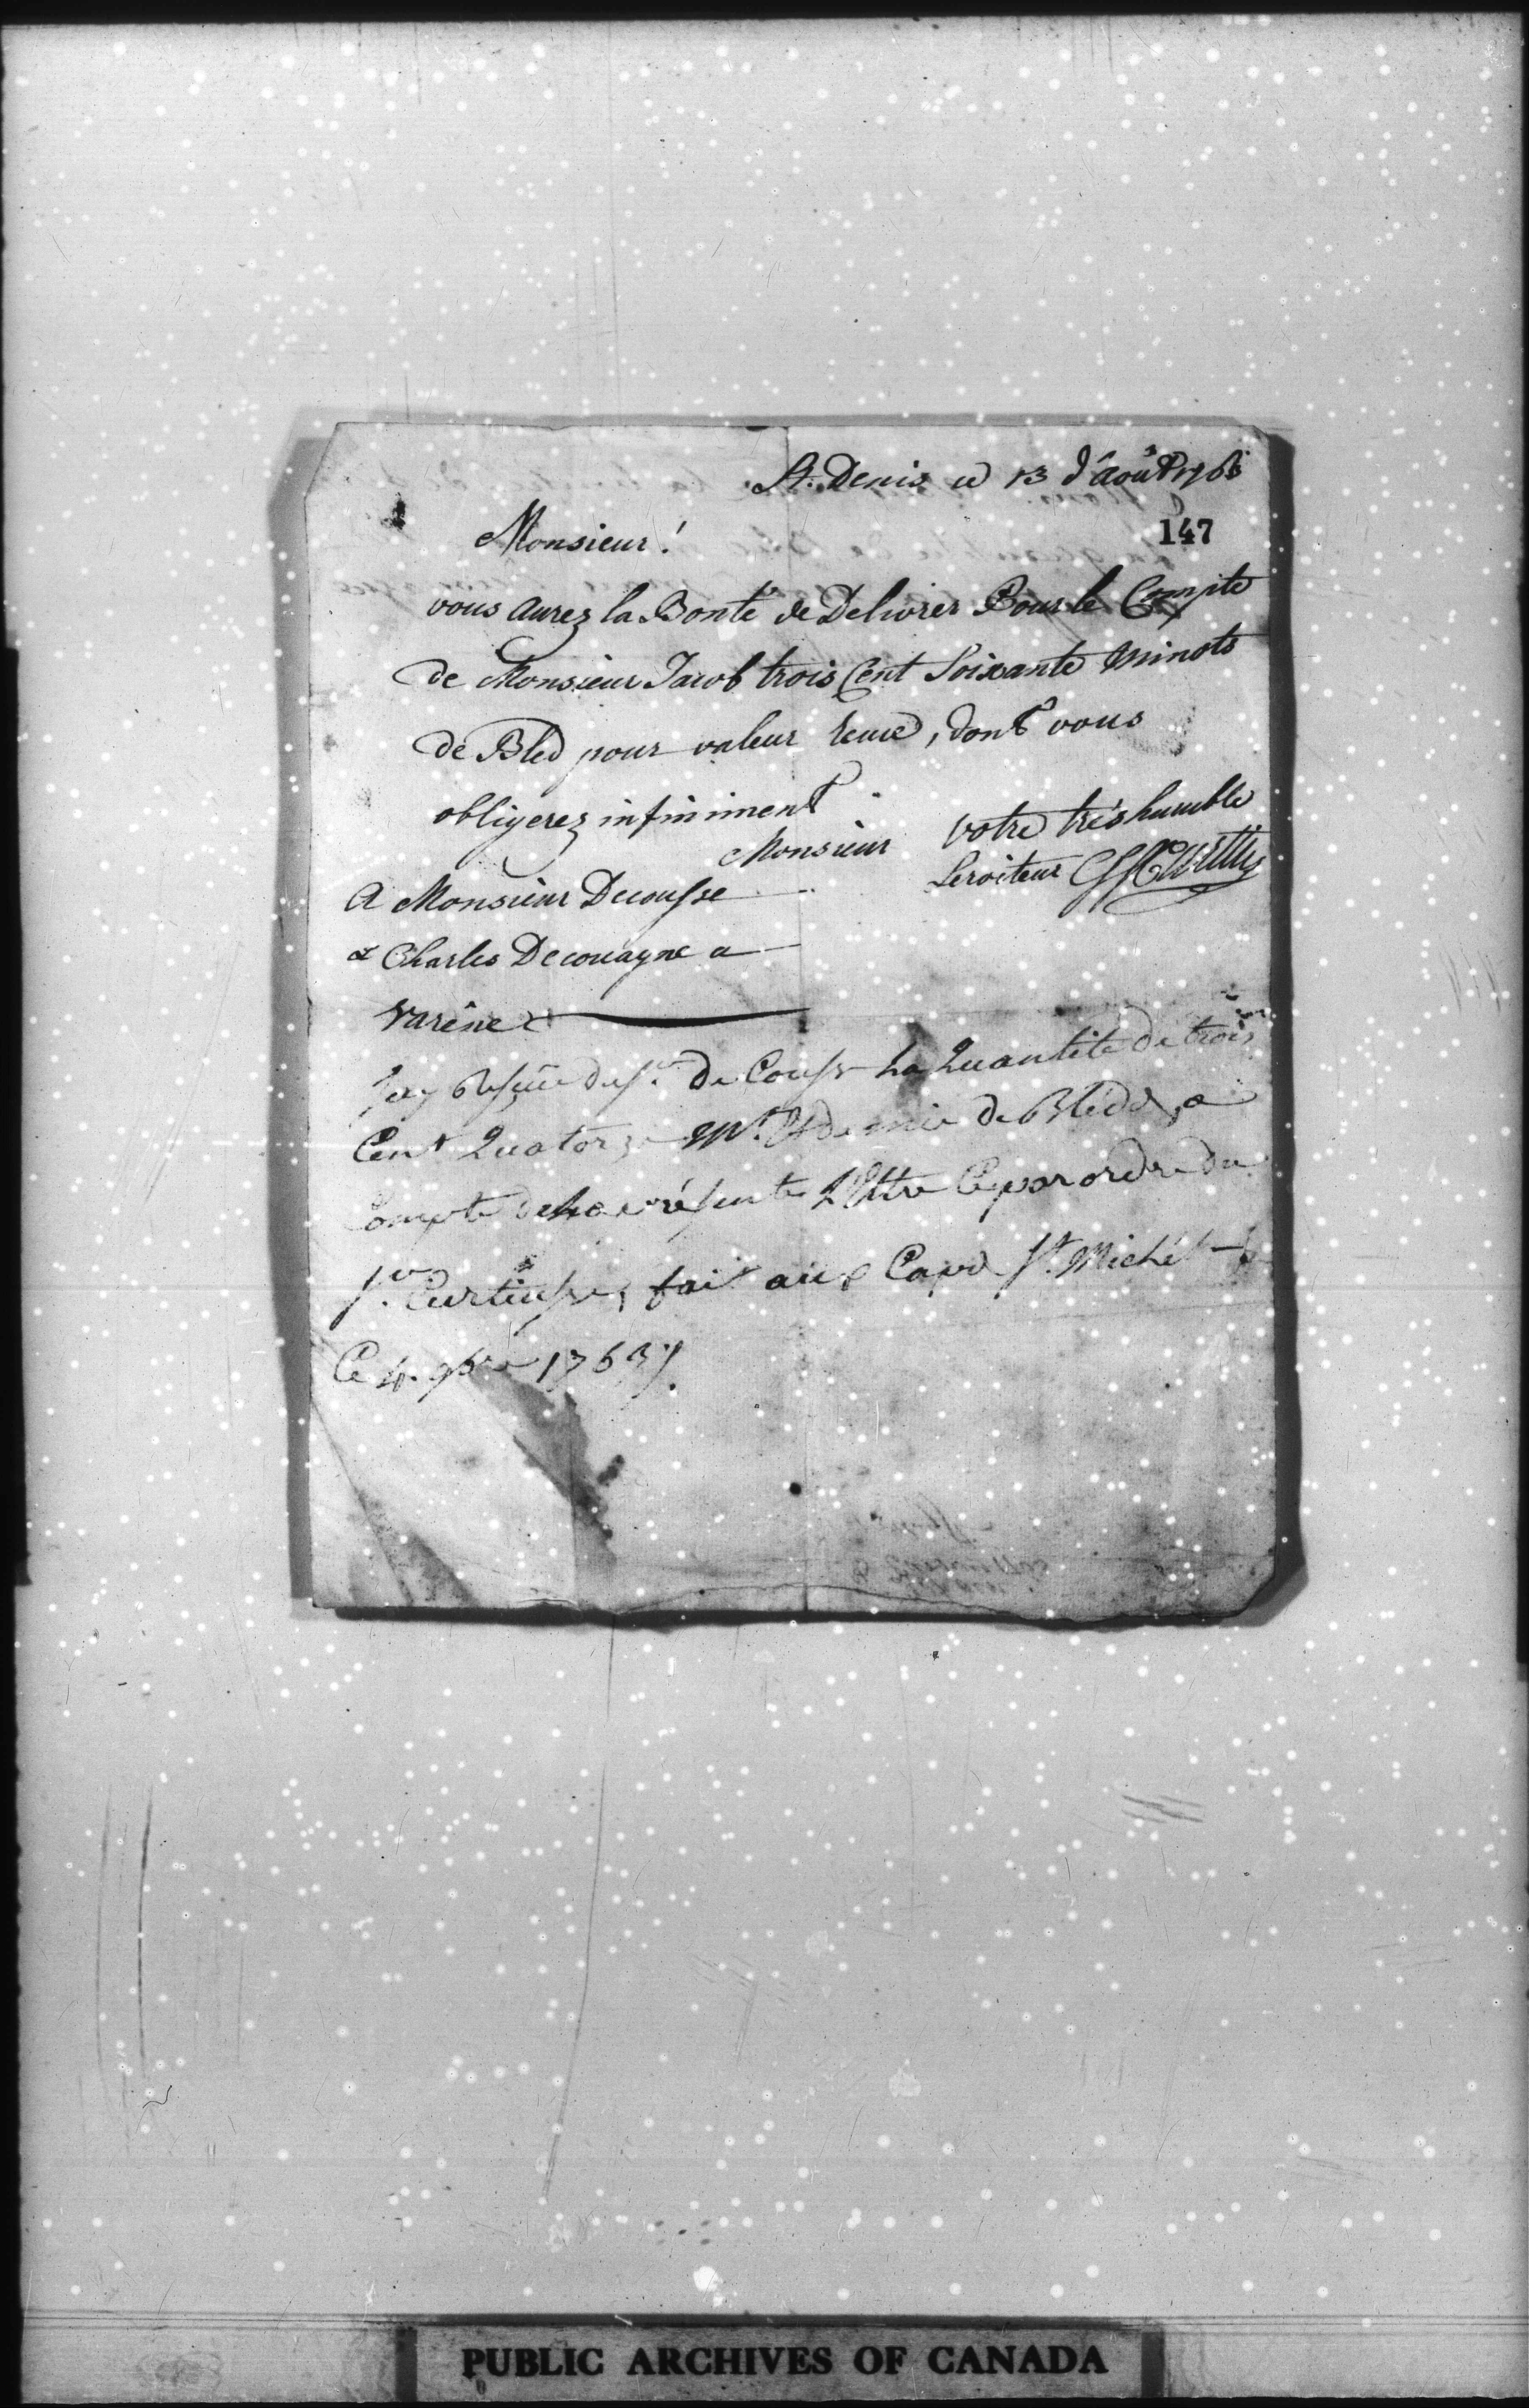 St. Denis ce 13 d'août 1763
147
Monsieur!
vous aurez la Bonté de Delivrer Pour le Compte
de Monsieur Jacob trois Cent Soixante minots
de Bled pour valeur recue, dont vous
obligerez infiniment
Monsieur votre très humble
Serviteur
A Monsieur Decousse
& Charles Decouagne a
Varéne
Jay Resçue du Sr. de Couse La Quantité de trois
Cent Quatorze mt. & demie de Bledd, a
Compte de La présente Lettre Ce par ordre du
Sr. Curtiusse, fait au Cape St. Michél
Ce 4. 9bre 1763
PUBLIC ARCHIVES OF CANADA